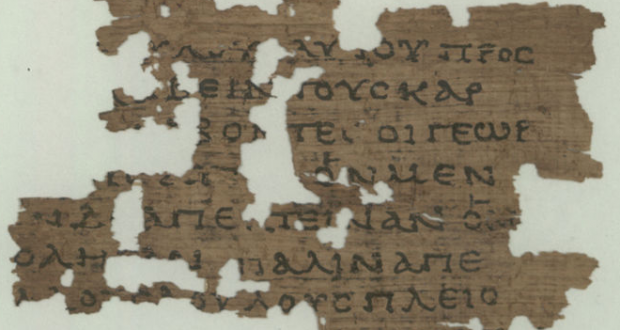 ΥΛΟΥϹ ΑΥΤΟΥ ΠΡΟϹ
ΒΕΙΝ ΤΟΥϹ ΚΑΡ
ΒΟΝΤΕϹ ΟΙ ΓΕΩΡ
ὋΝ ΜΕΝ
Ν Δ ΑΠΕ ΤΕΙΝΑΝ Ὃ
ΟΛΗ ΑΝ ΠΑΛΙΝ ΑΠΕ
ΟΥΛΟΥϹ ΠΛΕΙΟ